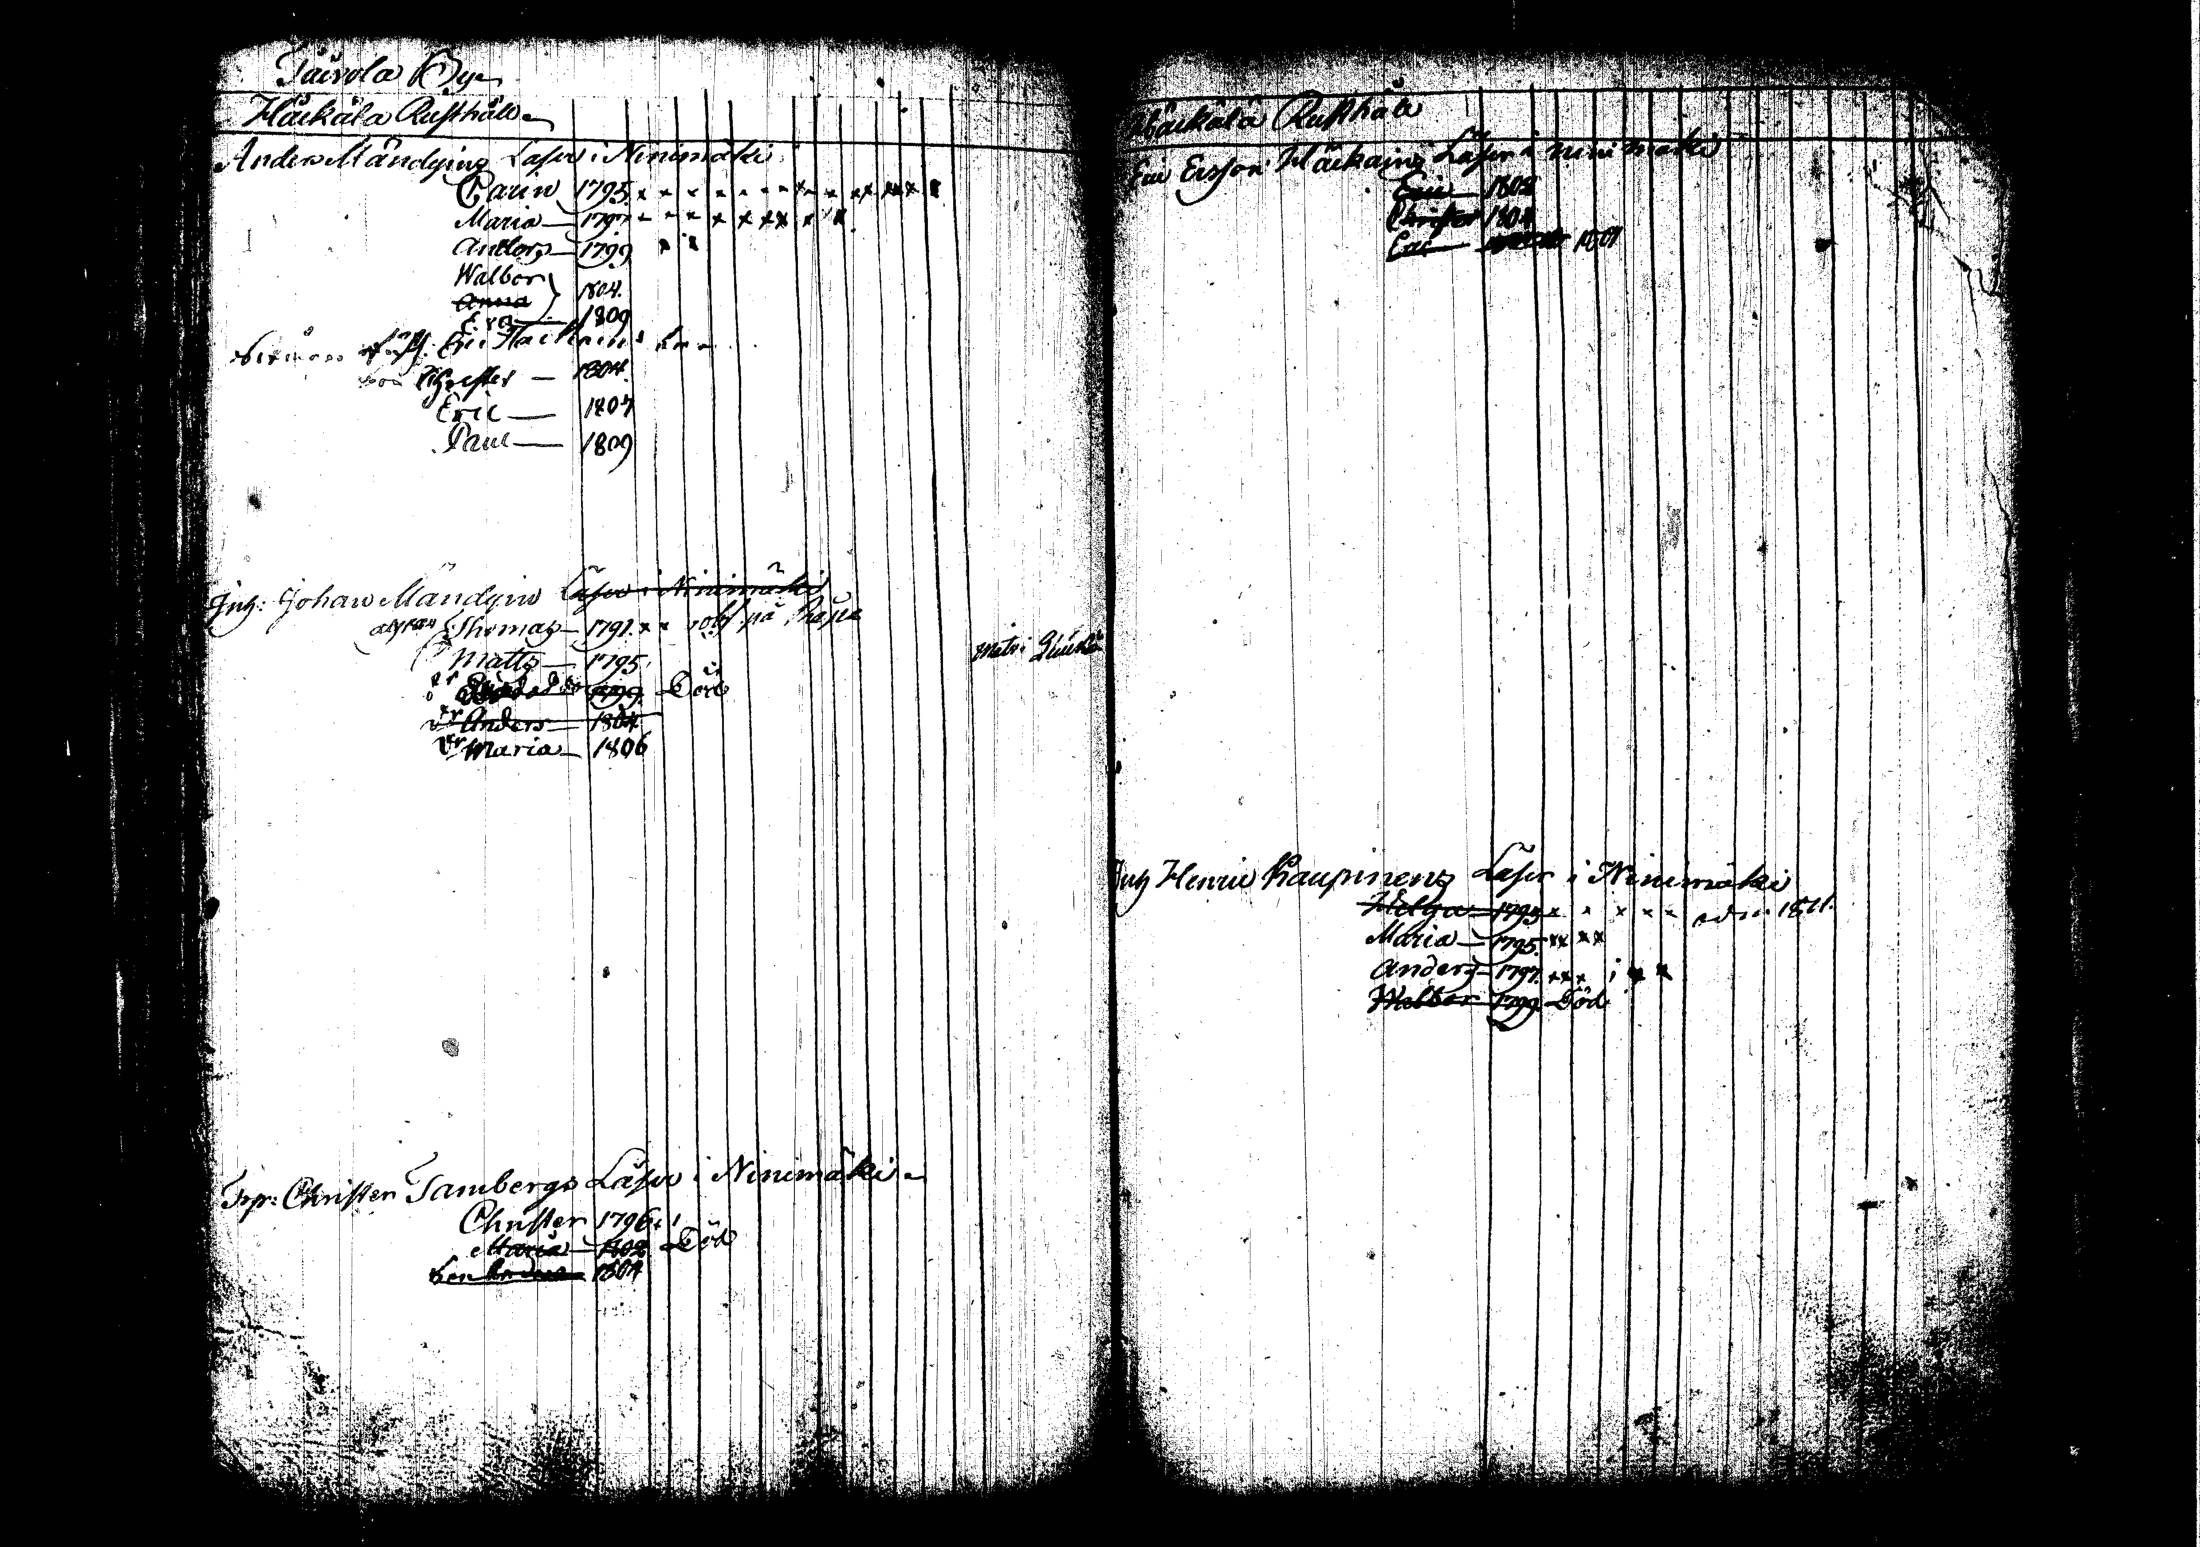 Taivola By
Häikälä Rusthåll
Anders Mändyins Läser i Ninimäki
Carin 1795
Maria 1797
Anders 1799
Walbor
Anna } 1804.
Eva 1809
Eric
Christer — 1804.
Eric — 1807
Paul — 1809
Inh: Johan Mändyins Läser i Ninimäki
Thomas — 1791. på
Matts — 1795.
1799. Död
Anders — 1804
Maria — 1806
Christer Tambergs Läser i Ninimäki
Christer 1796
Maria — 1802 Död
1804
Häikälä Rusthåll
Eric Ersson Häikäins Läser i Ninimäki
Eric 1802
Christer 1804
Eric 1807
Inh Henric Kaupinens Läser i Ninimäki
Helga — 1793 1811.
Maria — 1795.
Anders — 1797.
Walbor 1799 Död